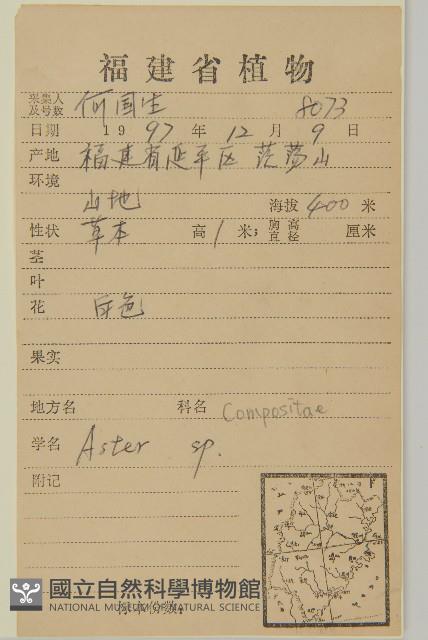 福建省植物
采集人及号数 何国生 8073
日期 1997年12月9日
产地 福建省延平区茫荡山
环境
山地 海拔 400 米
性状 草本 高 1 米; 胸高直径 厘米
茎
叶
花 白色
果实
地方名 科名 Compositae
学名 Aster sp.
附记
國立自然科學博物館
NATIONAL MUSEUM OF NATURAL SCIENCE